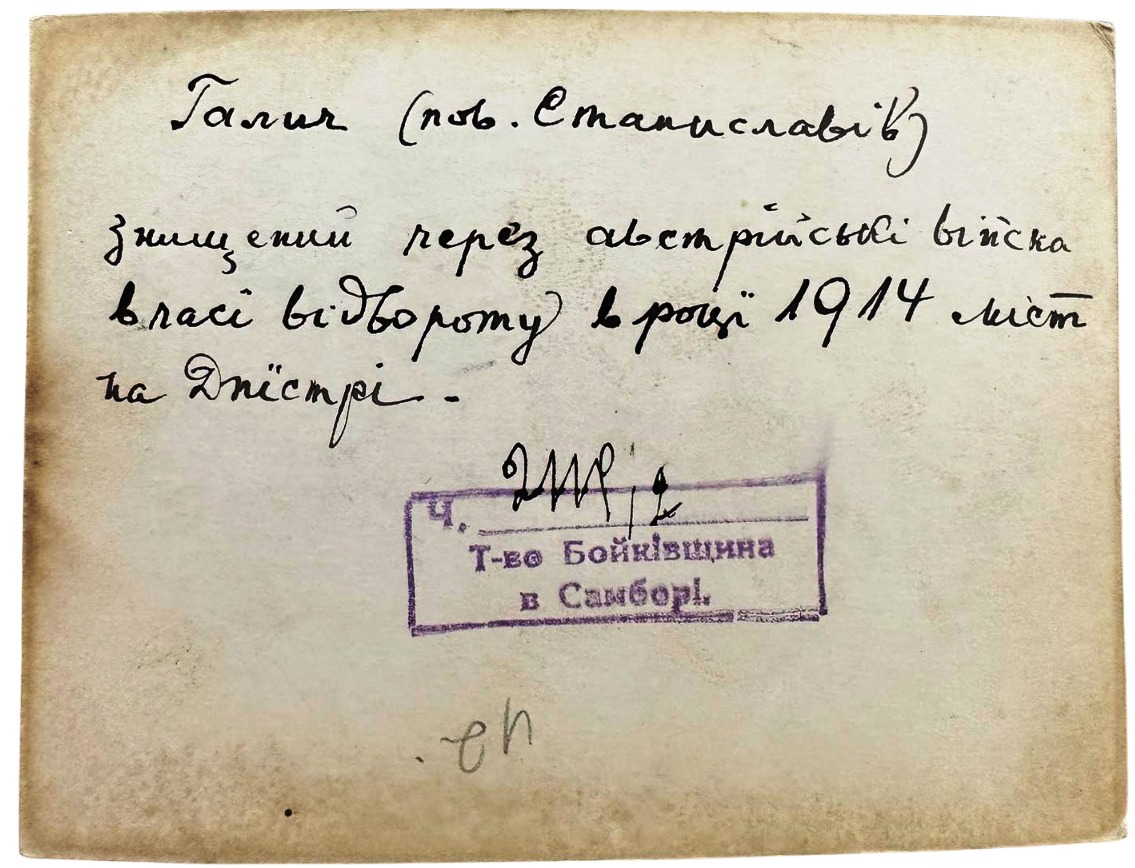 Галич (пов. Станиславів)
знищений через австрійські війска
в часі відвороту в році 1914 міст
на Дністрі. -
Ч.
Т-во Бойківщина
в Самборі.